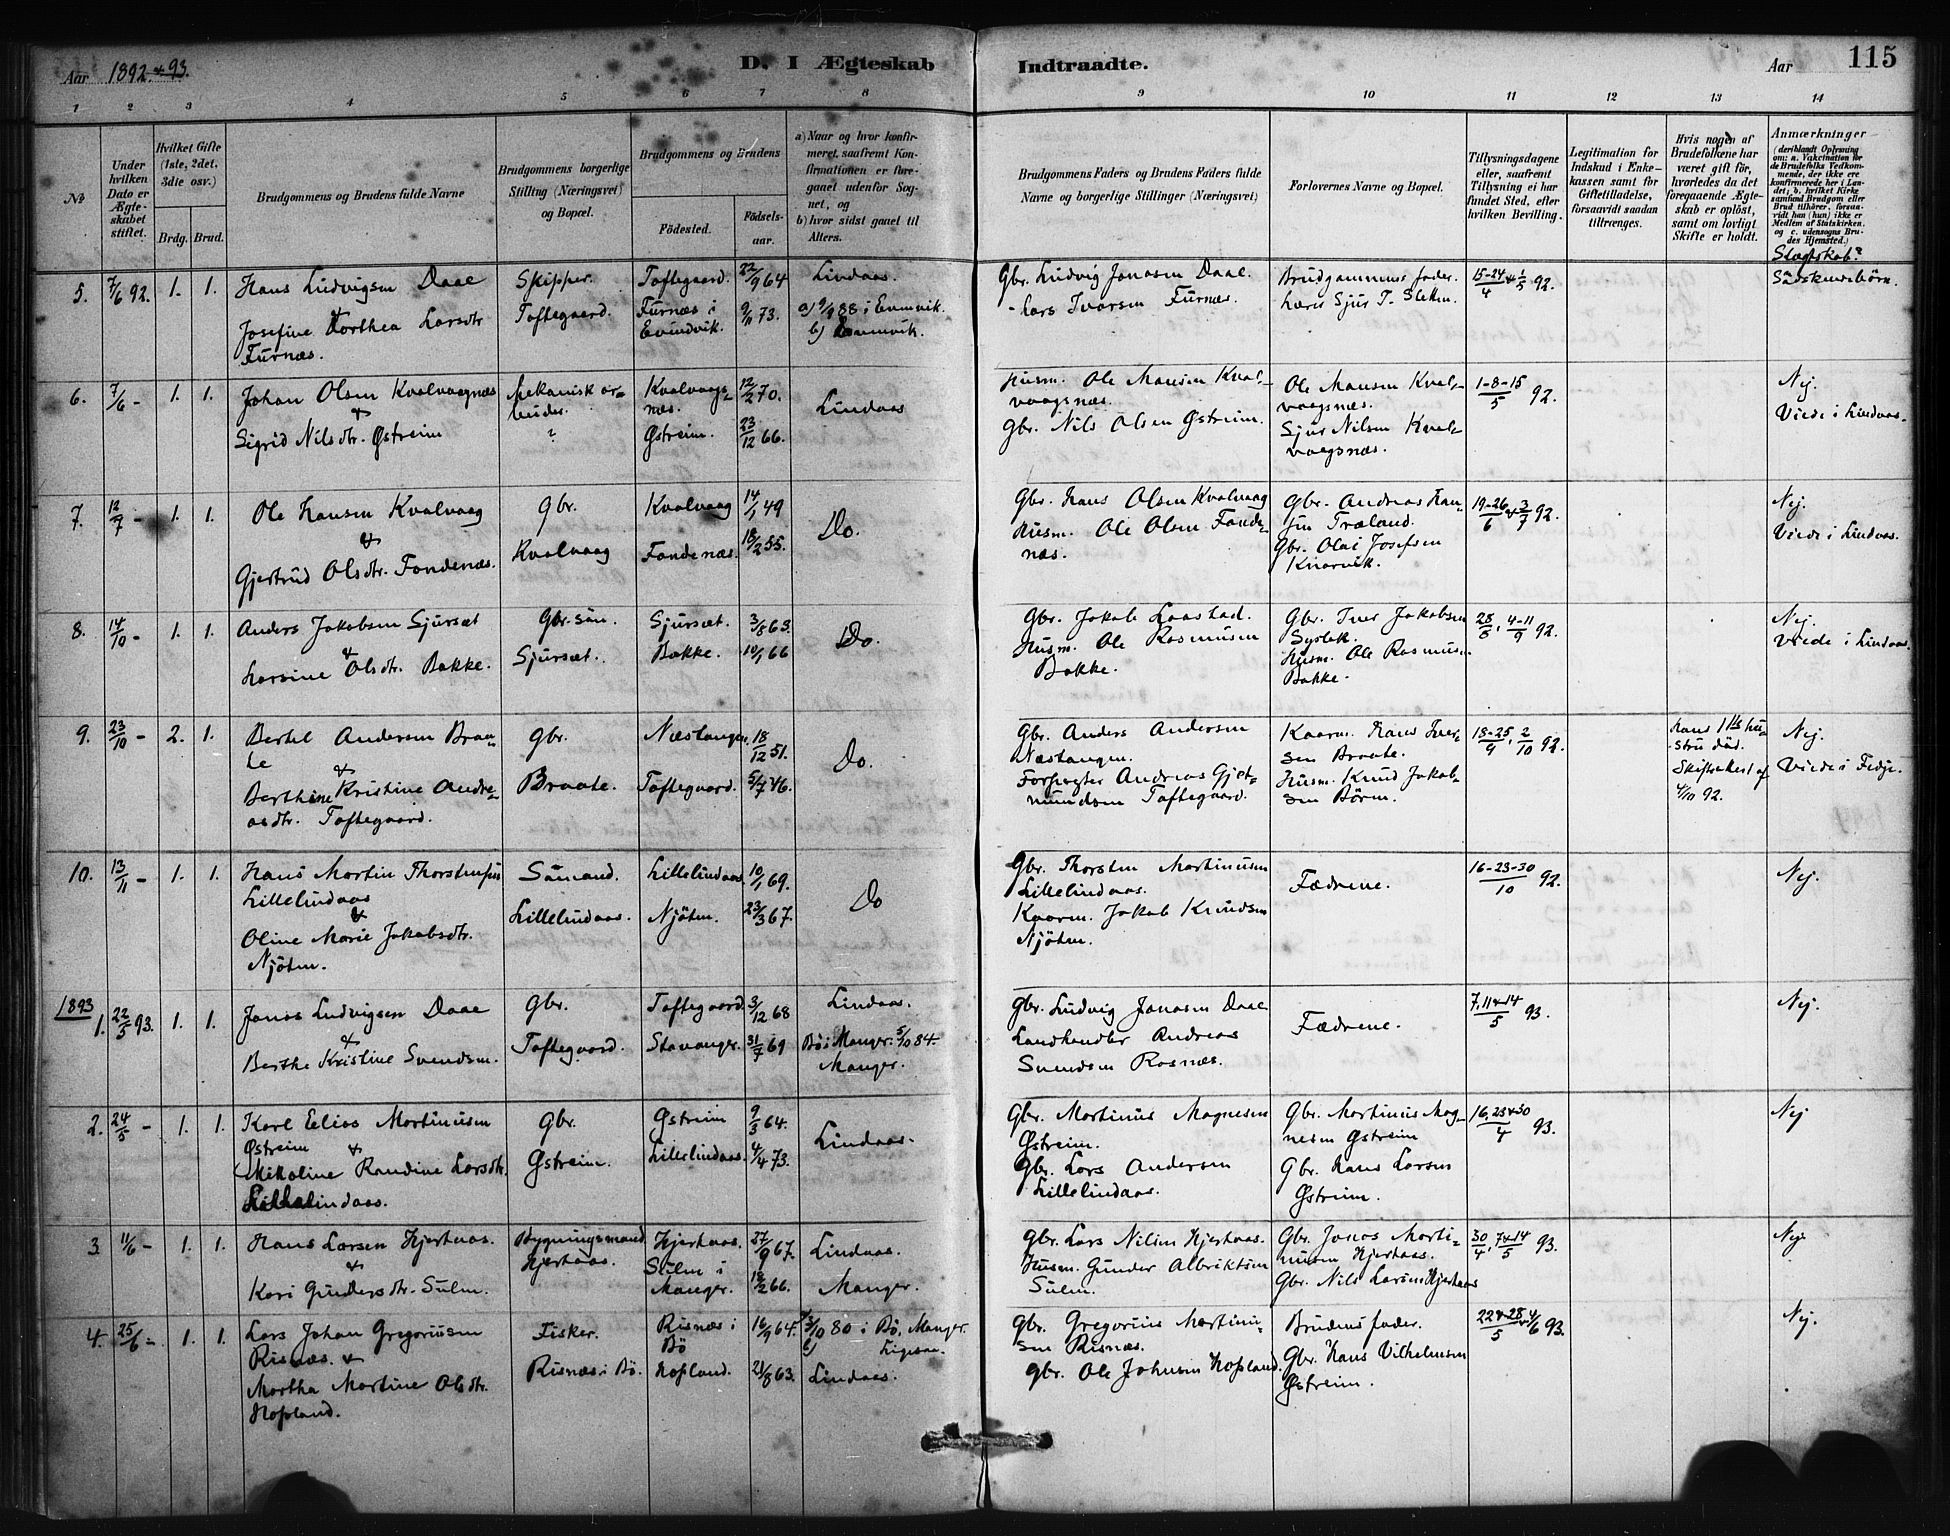 Aar 1892 & 93.
D. I Ægteskab Indtraadte.
Aar 115
1 2 3 4 5 6 7 8 9 10 11 12 13 14
№
Under hvilken Dato er Ægteskabet stiftet.
Hvilket Gifte (1ste, 2det, 3die osv.)
Brdg. Brud.
Brudgommens og Brudens fulde Navne
Brudgommens borgerlige Stilling (Næringsvei) og Bopæl.
Brudgommens og Brudens
Fødested.
Fødselsaar.
a) Naar og hvor konfirmeret, saafremt Konfirmationen er foregaaet udenfor Sognet, og
b) hvor sidst gaaet til Alters.
Brudgommens Faders og Brudens Faders fulde Navne og borgerlige Stillinger (Næringsvei)
Forlovernes Navne og Bopæl.
Tillysningsdagene eller, saafremt Tillysning ei har fundet Sted, efter hvilken Bevilling.
Legitimation for Indskud i Enkekassen samt for Giftetilladelse, forsaavidt saadan tiltrænges.
Hvis nogen af Brudefolkene har været gift før, hvorledes da det foregaaende Ægteskab er opløst, samt om lovligt Skifte er holdt.
Anmærkninger (deriblandt Oplysning om: a. Vakcination for de Brudefolks Vedkommende, der ikke ere konfirmerede her i Landet; b. hvilket Kirkesamfund Brudgom eller Brud tilhører, forsaavidt han (hun) ikke er Medlem af Statskirken, og c. udensogns Brudes Hjemsted.)
Slægtskab?
5. 7/6 92. 1. 1. Hans Ludvigsen Daae & Josefine Dorthea Larsdtr Furnæs.
Skipper. Toftegaard.
Toftegaard. 22/9 64
Furnæs i Evindvik. 9/11 73.
Lindaas.
a) 9/9 88 i Evenvik. b) Evenvik.
Gbr. Ludvig Jonasen Daae.
- Lars Ivarsen Furnæs.
Brudgommens fader.
Lærer Sjur T. Sletten.
15-24/4 & 1/5 92.
Södskendebörn.
6. 7/6 - 1. 1. Johan Olsen Kvalvaagnæs & Sigrid Nilsdtr. Østreim
Mekanisk arbeider. ?
Kvalvaagnæs. 12/2 70.
Østreim. 23/12 66.
Lindaas
Husm. Ole Mansen Kvalvaagnæs.
Gbr. Nils Olsen Østreim.
Ole Mansen Kvalvaagsnæs.
Sjur Nilsen Kvalvaagsnæs.
1-8-15/5 92.
Nej.
Viede i Lindaas.
7. 12/7 - 1. 1. Ole Hansen Kvalvaag & Gjertrud Olsdtr. Fondenæs.
Gbr. Kvalvaag
Kvalvaag 14/1 49
Fondenæs. 18/2 55.
Do.
Gbr. Hans Olsen Kvalvaag
Husm. Ole Olsen Fondenæs.
Gbr. Andreas Hansen Træland.
Gbr. Olai Josefsen Knarvik.
19-26/6 & 3/7 92.
Nej.
Viede i Lindaas.
8. 14/10 - 1. 1. Anders Jakobsen Sjursæt & Larsine Olsdtr. Bakke.
Gbr. søn. Sjursæt.
Sjursæt. 3/8 63.
Bakke. 10/1 66
Do.
Gbr. Jakob Laastad.
Husm. Ole Rasmusen Bakke.
Gbr. Iver Jakobsen
Husm. Ole Rasmusn Bakke.
28/8, 4-11/9 92.
Nej.
Viede i Lindaas.
9. 23/10 - 2. 1. Bertel Andersen Braate & Berthine Kristine Andreasdtr. Toftegaard.
Gbr. Braate.
Næstangen. 18/12 51.
Toftegaard. 5/7 46.
Do.
Gbr. Anders Andersen Næstangen.
Forpagter Andreas Gjetmundsen Toftegaard.
Kaarm. Hans Iversen Braate.
Husm. Knud Jakobsen Börm.
18-25/9, 2/10 92.
Hans 1ste hustru död. Skifteattest af 4/10 92.
Nej.
Viede i Fedje.
10. 13/11 - 1. 1. Hans Martin Thorstensen Lillelindaas & Oline Marie Jakobsdtr. Njöten.
Sömand. Lillelindaas.
Lillelindaas. 10/1 69.
Njöten. 23/3 67.
Do
Gbr. Thorsten Martinusen Lillelindaas.
Kaarm. Jakob Knudsen Njöten.
Fædrene.
16-23-30/10 92.
Nej.
1893
1. 22/5 93. 1. 1. Jonas Ludvigsen Daae & Berthe Kristine Svendsen.
Gbr. Toftegaard.
Toftegaard 3/12 68
Stavanger. 31/7 69
Lindaas.
Bø i Manger. 5/10 84. Manger.
Gbr. Ludvig Jonasen Daae
Landhandler Andreas Svendsen Rosnæs.
Fædrene.
7, 11 & 14/5 93.
Nej.
2. 24/5 - 1. 1. Karl Elias Martinusen Østreim & Mikaline Randine Larsdtr. Lillelindaas.
Gbr. Østreim.
Østreim 9/3 64.
Lillelindaas. 4/4 73.
Lindaas.
Gbr. Martinus Magnesen Østreim.
Gbr. Lars Andersen Lillelindaas.
Gbr. Martinus Magnesen Østreim
Gbr. Hans Larsen Østreim.
16, 23 & 30/4 93.
Nej
3. 11/6 - 1. 1. Hans Larsen Hjertaas. & Kari Gundersdtr. Sulen.
Bygningsmand Hjertaas.
Hjertaas. 27/9 67.
Sulen i Manger. 18/2 66.
Lindaas.
Manger.
Gbr. Lars Nilsen Hjertaas.
Husm. Gunder Albriktsen Sulen.
Gbr. Jonas Martinusen Hjertaas.
Gbr. Nils Larsen Hjertaas
30/4, 7 & 14/5 93.
Nej.
4. 25/6 - 1. 1. Lars Johan Gregoriusen Risnæs. & Martha Martine Olsdtr. Hopland.
Fisker. Risnæs i Bö.
Risnæs i Bö 16/9 64.
Hopland. 21/8 63.
3/10 80 i Bö, Manger. b) Ligesaa.
Lindaas.
Gbr. Gregorius Martinusen Risnæs.
Gbr. Ole Johnsen Hopland.
Brudens fader.
Gbr. Hans Vilhelmsen Østreim.
22 & 28/5 & 4/6 93.
Nej.